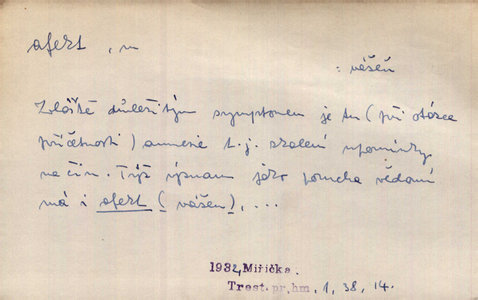 afekt, m
: vášeň
Zvláště důležitým symptomem je tu (při otázce
příčetnosti) amnesie t.j. zkalení upomínky
na čin. Týž význam jako porucha vědomí
má i afekt (vášeň), ...
1934, Miřička.
Trest.pr.hm, 1, 38, 14.